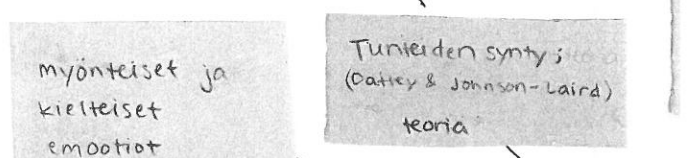 myönteiset ja
kielteiset
emootiot
Tunteiden synty;
(Oatley & Johnson-Laird)
teoria